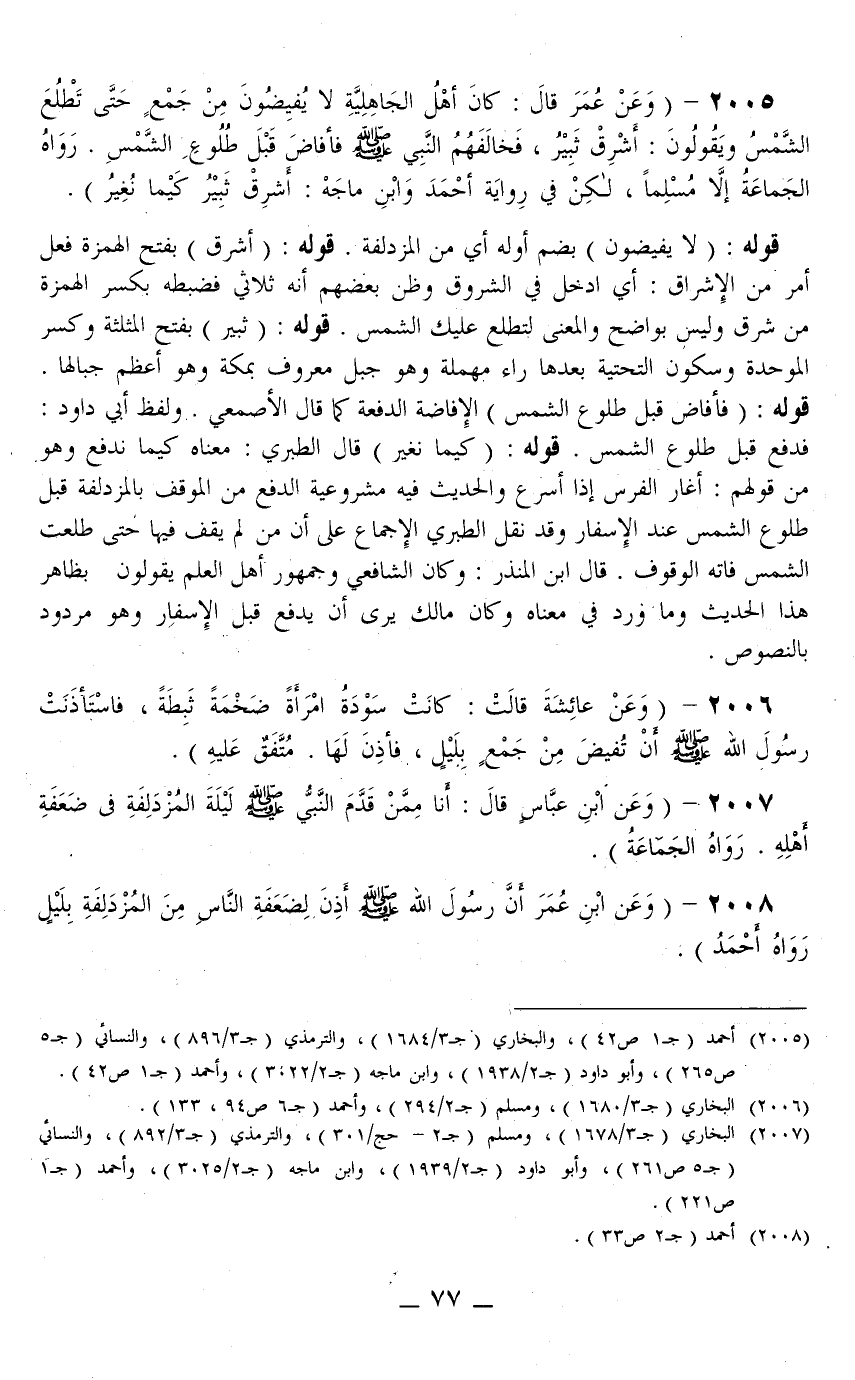 ٢٠٠٥ – ( وَعَنْ عُمَرَ قالَ : كانَ أهْلُ الجَاهِليَّةِ لا يُفيِضُونَ مِنْ جَمْعٍ حَتَّى تَطْلُعَ
الشَّمْسُ ويَقُولُونَ : أَشْرِقْ ثَبِيْرُ ، فَخالَفَهُمُ النَّبِي ﷺ فأفاضَ قَبْلَ طُلُوعِ الشَّمْسِ . رَوَاهُ
الجَماعَةُ إلَّا مُسْلِماً ، لٰكِنْ في رِوايَة أحْمَدَ وَابْنِ ماجَهْ : أشرِقْ ثَبِيْرُ كَيْما نُغِيرُ ) .
قوله : ( لا يفيضون ) بضم أوله أي من المزدلفة . قوله : ( أشرق ) بفتح الهمزة فعل
أمر من الإشراق : أي ادخل في الشروق وظن بعضهم أنه ثلاثي فضبطه بكسر الهمزة
من شرق وليس بواضح والمعنى لتطلع عليك الشمس . قوله : ( ثبير ) بفتح المثلثة وكسر
الموحدة وسكون التحتية بعدها راء مهملة وهو جبل معروف بمكة وهو أعظم جبالها .
قوله : ( فأفاض قبل طلوع الشمس ) الإفاضة الدفعة كما قال الأصمعي . ولفظ أبي داود :
فدفع قبل طلوع الشمس . قوله : ( كيما نغير ) قال الطبري : معناه كيما ندفع وهو
من قولهم : أغار الفرس إذا أسرع والحديث فيه مشروعية الدفع من الموقف بالمزدلفة قبل
طلوع الشمس عند الإسفار وقد نقل الطبري الإجماع على أن من لم يقف فيها حتى طلعت
الشمس فاته الوقوف . قال ابن المنذر : وكان الشافعي وجمهور أهل العلم يقولون بظاهر
هذا الحديث وما ورد في معناه وكان مالك يرى أن يدفع قبل الإسفار وهو مردود
بالنصوص .
٢٠٠٦ – ( وَعَنْ عائِشَةَ قالَتْ : كانَتْ سَوْدَةُ امْرَأَةً ضَخْمَةً ثَبِطَةً ، فاسْتَأذَنَتْ
رسُولَ الله ﷺ أَنْ تُفيضَ مِنْ جَمْعٍ بِلَيْلٍ ، فأذِنَ لَهَا . مُتَّفَقٌ عَليهِ ) .
٢٠٠٧ – ( وَعَن ابْنِ عبَّاسٍ قالَ : أَنا مِمَّنْ قَدَّمَ النَّبيُّ ﷺ لَيْلَةَ المُزْدَلِفَةِ فى ضَعَفَةِ
أَهْلِهِ . رَوَاهُ الجَمّاعَةُ ) .
٢٠٠٨ – ( وَعَن ابْنِ عُمَرَ أَنَّ رسُولَ الله ﷺ أَذِنَ لِضَعَفَةِ النَّاسِ مِنَ المُزْدَلِفَةِ بِلَيْلٍ
رَوَاهُ أَحْمَدُ ) .
(٢٠٠٥) أحمد ( جـ١ ص٤٢ ) ، والبخاري ( جـ١٦٨٤/٣ ) ، والترمذي ( جـ٨٩٦/٣ ) ، والنسائي ( جـ٥
ص٢٦٥ ) ، وأبو داود ( جـ١٩٣٨/٢ ) ، وابن ماجه ( جـ٣٠٢٢/٢ ) ، وأحمد ( جـ١ ص٤٢ ) .
(٢٠٠٦) البخاري ( جـ١٦٨٠/٣ ) ، ومسلم ( جـ٢٩٤/٢ ) ، وأحمد ( جـ٦ ص٩٤ ، ١٣٣ ) .
(٢٠٠٧) البخاري ( جـ١٦٧٨/٣ ) ، ومسلم ( جـ٢ – حج/٣٠١ ) ، والترمذي ( جـ٨٩٢/٣ ) ، والنسائي
( جـ٥ ص٢٦١ ) ، وأبو داود ( جـ١٩٣٩/٢ ) ، وابن ماجه ( جـ٣٠٢٥/٢ ) ، وأحمد ( جـ١
ص٢٢١ ) .
(٢٠٠٨) أحمد ( جـ٢ ص٣٣ ) .
— ٧٧ —